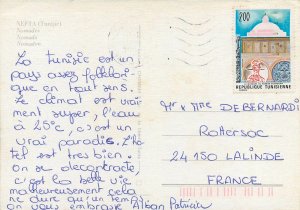 NEFTA (Tunisie)
Nomades
Nomads
Nomaden
La Tunisie est un
pays assez folklori-
que en tout sens.
Le climat est vrai-
ment super, l'eau
à 25°c, c'est un
vrai paradis. L'hô-
tel est très bien.
On se décontracte,
c'est la belle vie
malheureusement cela
ne dure qu'un temps
on vous embrasse Alban Patricia
200
REPUBLIQUE TUNISIENNE
Mr x Mme DEBERNARDI
Rottersac
24150 LALINDE
FRANCE